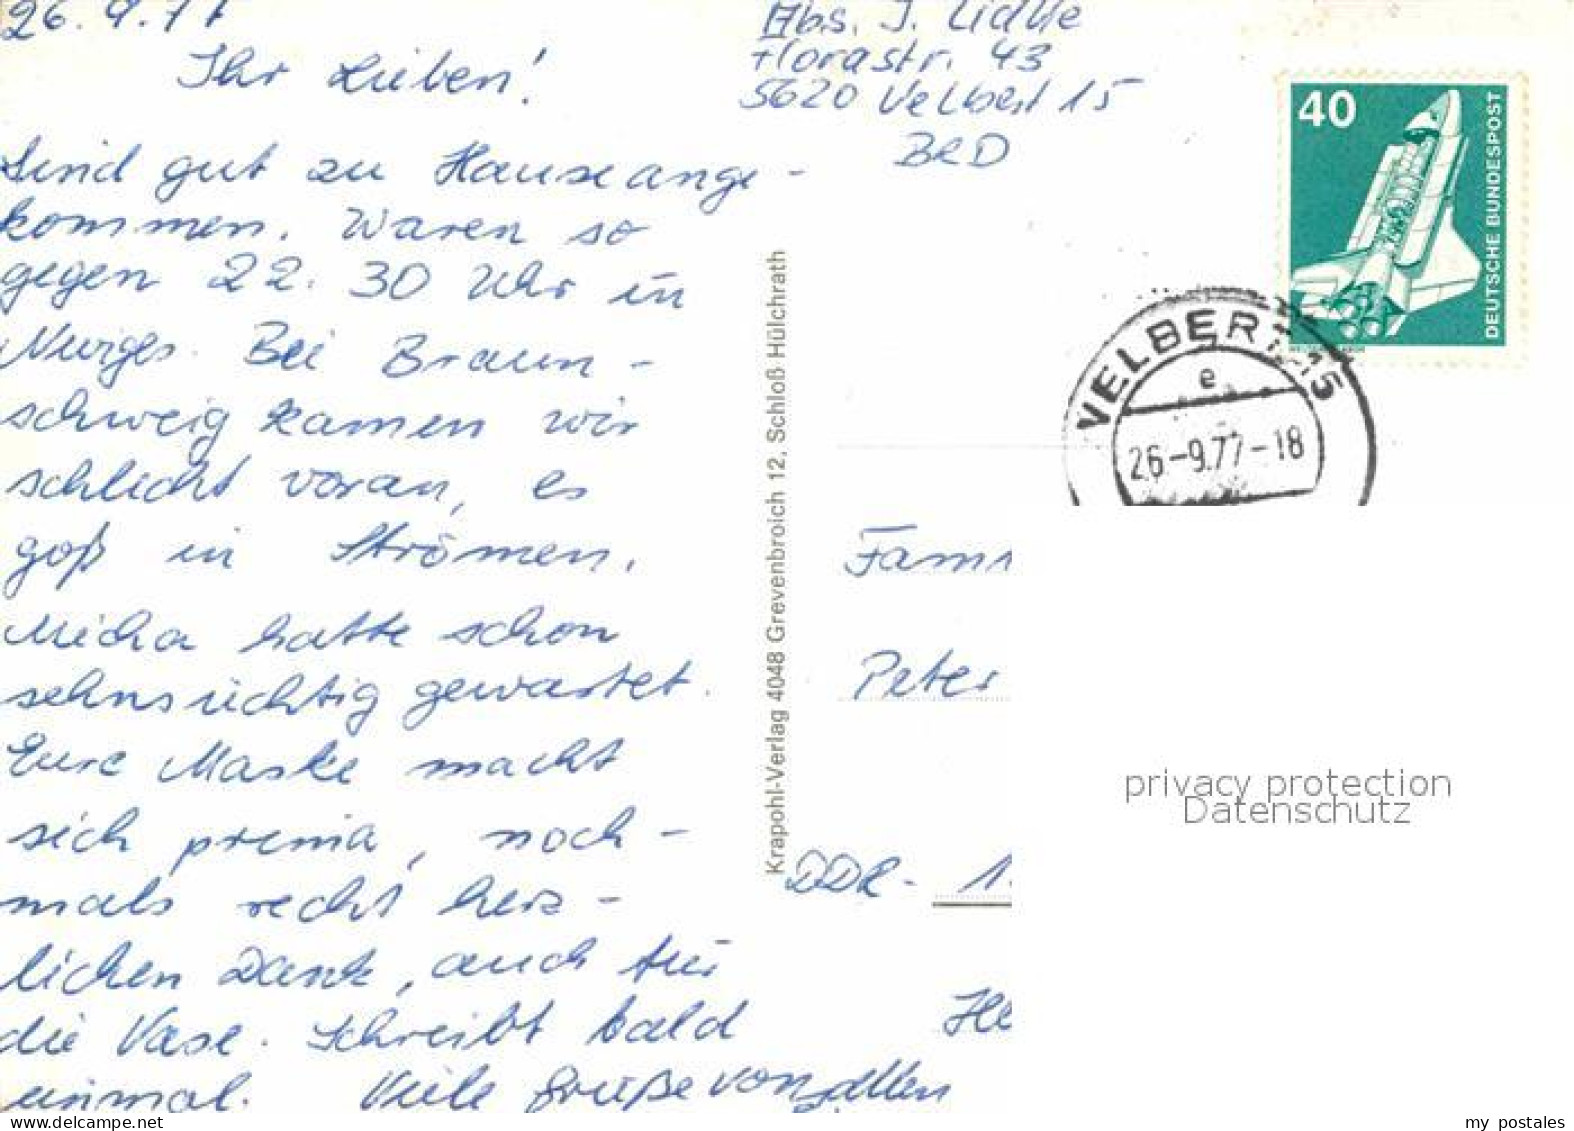 26.9.77
Ihr Lieben!
Sind gut zu Hause ange-
kommen. Waren so
gegen 22.30 Uhr in
Neviges. Bei Braun-
schweig kamen wir
schlecht voran, es
goß in Strömen.
Micha hatte schon
sehnsüchtig gewartet.
Eure Maske macht
sich prima, noch-
mals recht herz-
lichen Dank, auch für
die Vase. Schreibt bald
einmal. Viele Grüße von allen
Abs. J. Lidtke
Florastr. 43
5620 Velbert 15
BRD
40
DEUTSCHE BUNDESPOST
VELBERT 15
e
26-9.77-18
Krapohl-Verlag 4048 Grevenbroich 12, Schloß Hülchrath
Fam
Peter
DDR- 1
He
privacy protection
Datenschutz
my postales